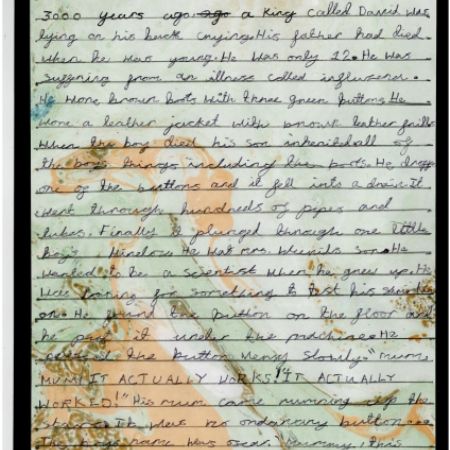 3000 years ago ago a King called David was
lying on his back crying. His father had died
when he was young. He was only 22. He was
suffering from an illness called influenza.
He wore brown boots with three green buttons. He
wore a leather jacket with brown leather frills
When the boy died his son inherited all of
the boys things including the boots. He
one of the buttons and it fell into a drain. It
went through hundreds of pipes and
tubes. Finally it plunged through one little
boys window. He was mrs son. He
wanted to be a scientist when he grew up. He
was for something to test his
on. He found the button on the floor and
he put it under the machine. He
the button very slowly. "mum,
MUM! IT ACTUALLY WORKS! IT ACTUALLY
WORKED!" His mum came running up the
stairs. It was no ordanary button.
The boys name was oscar. "Mummy, this